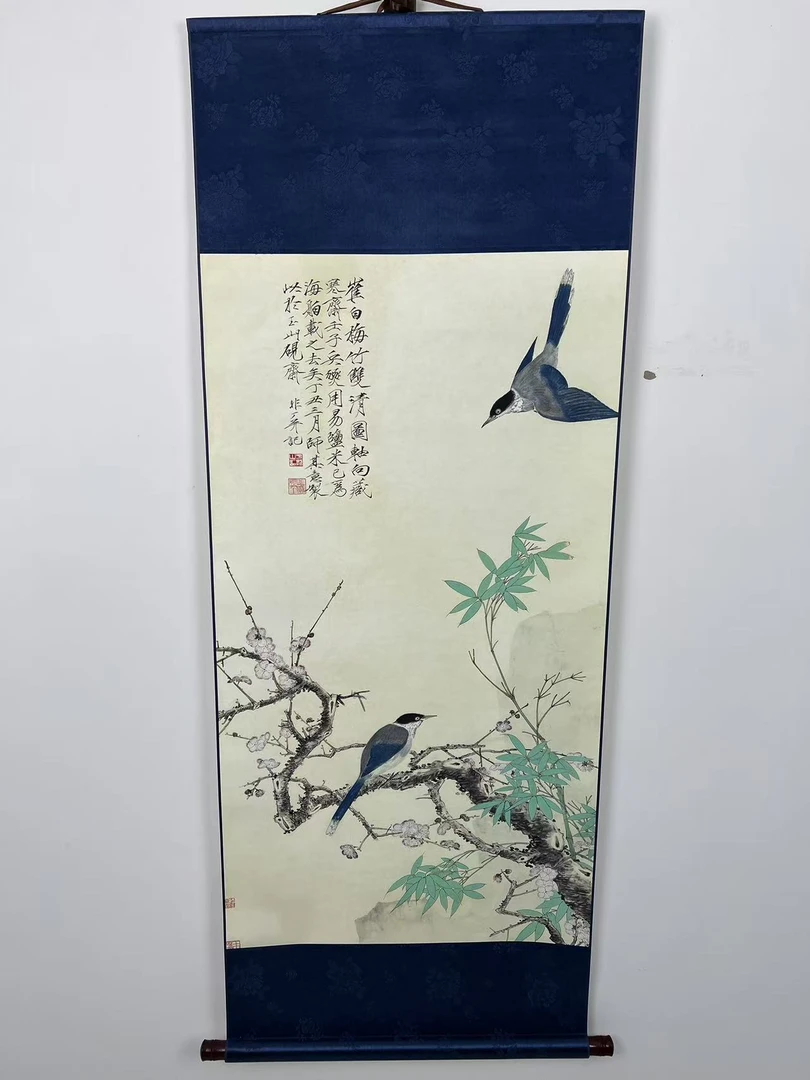 崔白梅竹雙清圖軸向藏
寒齋壬子兵燹用易鹽米已為
海舶載之去矣丁丑三月師其意製
於玉山硯齋 非厂記